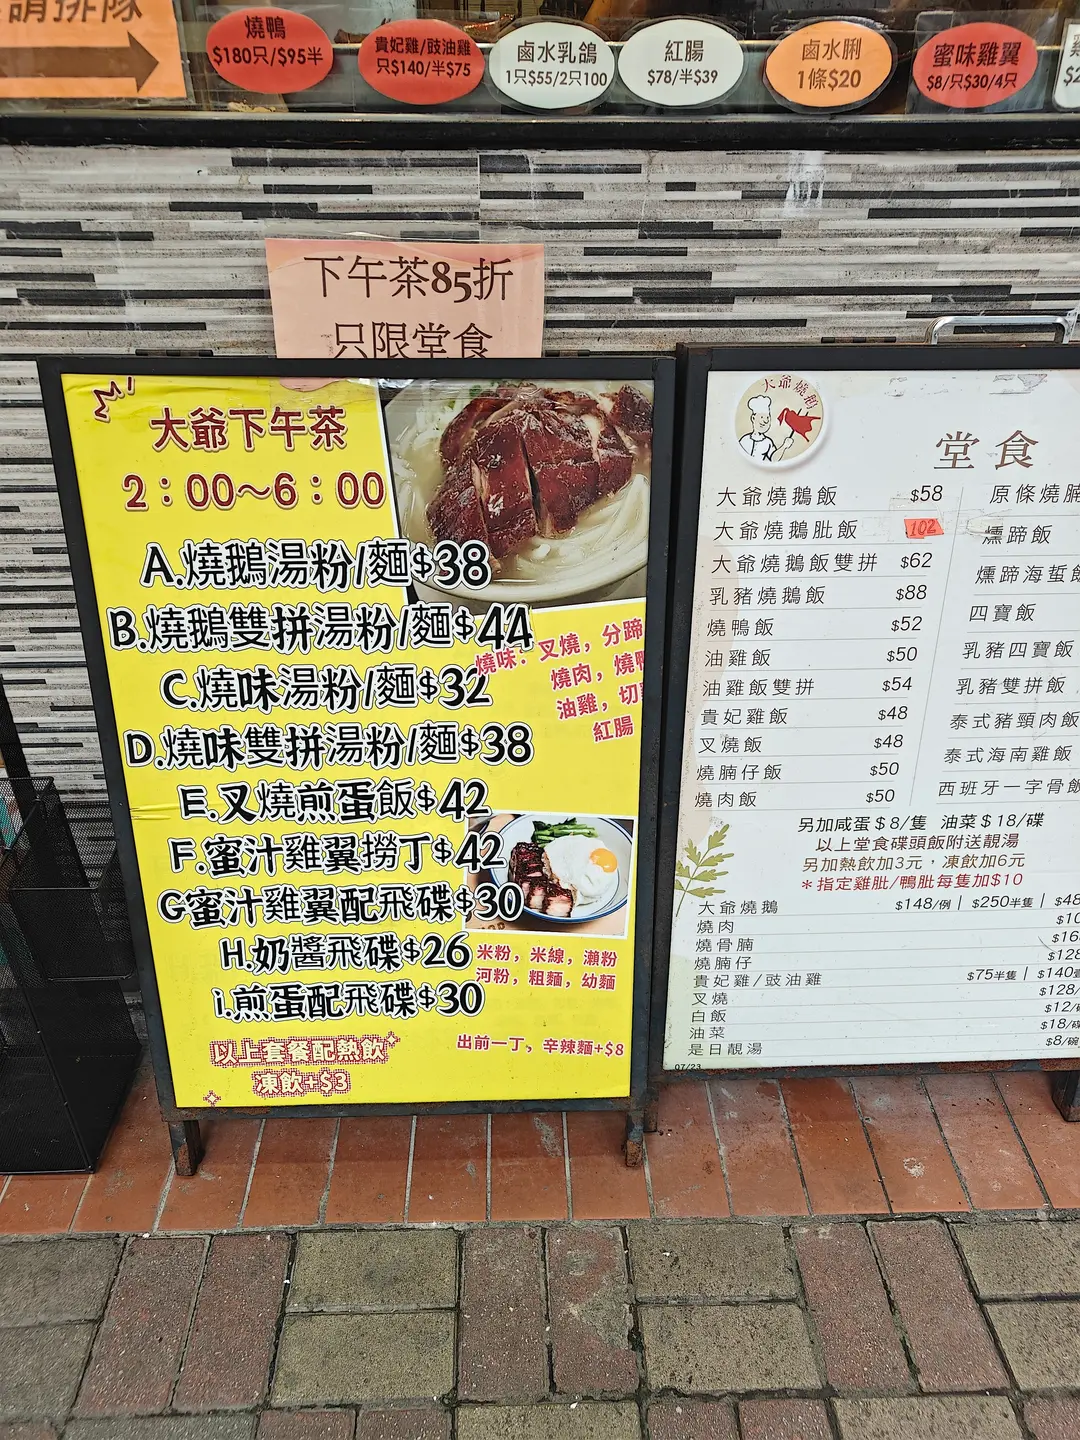 請排隊
燒鴨
$180只/$95半
貴妃雞/豉油雞
只$140/半$75
鹵水乳鴿
1只$55/2只100
紅腸
$78/半$39
鹵水脷
1條$20
蜜味雞翼
$8/只$30/4只
下午茶85折
只限堂食
大爺下午茶
2：00～6：00
A.燒鵝湯粉/麵$38
B.燒鵝雙拼湯粉/麵$44
C.燒味湯粉/麵$32
D.燒味雙拼湯粉/麵$38
E.叉燒煎蛋飯$42
F.蜜汁雞翼撈丁$42
G蜜汁雞翼配飛碟$30
H.奶醬飛碟$26
i.煎蛋配飛碟$30
燒味：叉燒，分蹄
燒肉，燒鴨
油雞，切
紅腸
米粉，米線，瀨粉
河粉，粗麵，幼麵
以上套餐配熱飲
凍飲+$3
出前一丁，辛辣麵+$8
大爺燒鵝
堂食
大爺燒鵝飯 $58
大爺燒鵝肶飯 102
大爺燒鵝飯雙拼 $62
乳豬燒鵝飯 $88
燒鴨飯 $52
油雞飯 $50
油雞飯雙拼 $54
貴妃雞飯 $48
叉燒飯 $48
燒腩仔飯 $50
燒肉飯 $50
原條燒腩
燻蹄飯
燻蹄海蜇飯
四寶飯
乳豬四寶飯
乳豬雙拼飯
泰式豬頸肉飯
泰式海南雞飯
西班牙一字骨飯
另加咸蛋$8/隻 油菜$18/碟
以上堂食碟頭飯附送靚湯
另加熱飲加3元，凍飲加6元
*指定雞肶/鴨肶每隻加$10
大爺燒鵝 $148/例 | $250半隻 | $48
燒肉 $10
燒骨腩 $16
燒腩仔 $128
貴妃雞/豉油雞 $75半隻 | $140
叉燒 $128/
白飯 $12/
油菜 $18/碟
是日靚湯 $8/碗
07/23